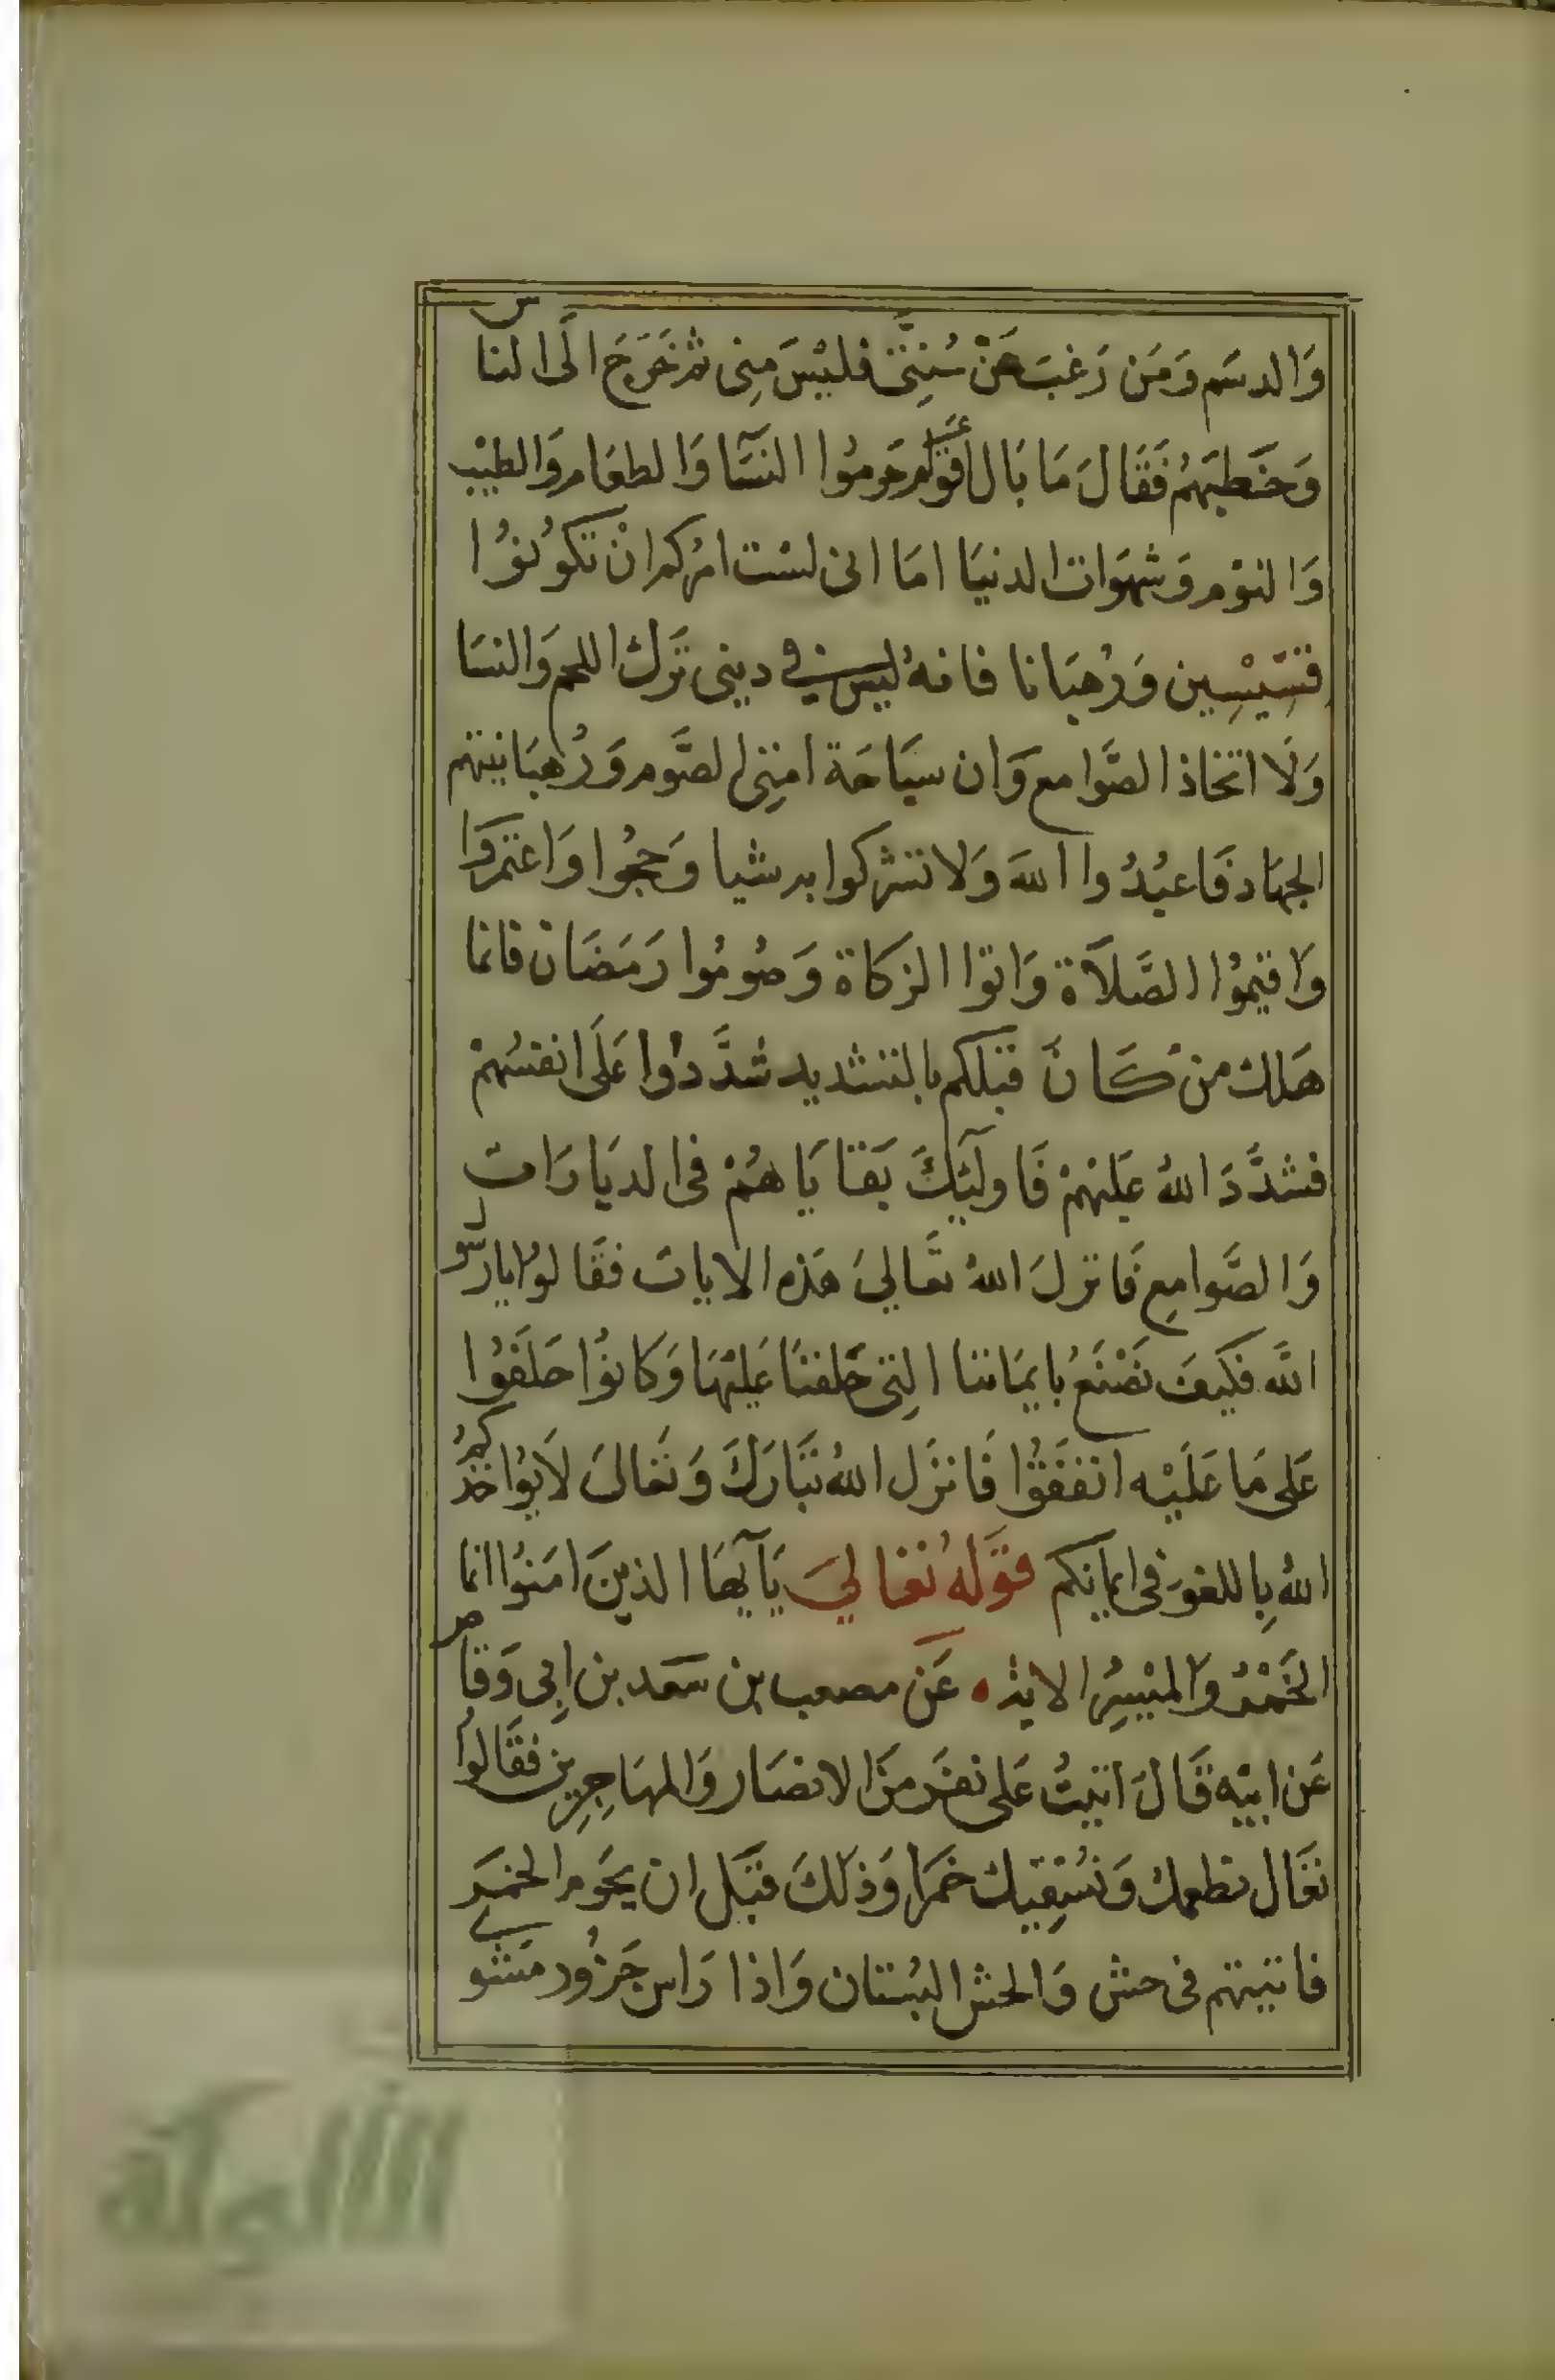 وَالدسَم وَمَن رَغبَ عَنْ سُنتِى فليْسَ مِنِى ثم خَرَجَ الَى الناس
وَخَطبَهُم فَقَالَ مَا بَال اقوَام حَرموُا النسَآ وَالطعَام وَالطيْب
وَالنوْم وَشهَوَات الدنيَا امَا انى لسْت امُركم انْ تكوُنوُا
قسِّيْسِين وَرُهبَانا فانهُ ليس فى دينى تَرك اللحم وَالنسَا
وَلَا اتخاذ الصَّوامع وَان سيَاحَة امتِى الصَّوم وَرُهبَانيتهم
الجهَاد فَاعبُدُوا اللهَ وَلا تشركوا به شيا وَحجُوا وَاعتمروَا
وَاقيموُا الصَّلَاة وَاتوا الزكاة وَصُومُوا رَمَضَان فانما
هَلك منْ كَانَ قبْلكم بالتشديد شدَّدوُا عَلَى انفسُهمْ
فشدَّدَ اللهُ عَليْهمْ فَاولَئِكَ بَقايَاهُمْ فى الديَارَات
وَالصَّوامعِ فَانزلَ اللهُ تعَالىَ هَذه الايات فقَالوُا يارسول
اللَّه فكيفَ نصْنَعُ بايمَاننا التِى حَلفنَا عَليْهَا وَكانوُا حَلَفوُا
عَلى مَا عَلَيْه اتفقَقُوا فَانزَل اللهُ تبَارَكَ وَتعَالىَ لَايوُاخذكمُ
اللهُ بِاللغو فى ايمانكم قوَلهُ تعَالىَ يَآيهَا الذينَ امَنوُا انما
الخَمْرُ وَالمَيْسِرُ الاية عَن مصعب بن سَعَد بن ابِى وَقاص
عَن ابيْه قَالَ اتيتُ عَلى نفَر منَ الانصَار وَالمهَاجِرِين فقَالوُا
تعَال نطعمك وَنسُقِيك خمَرا وَذلكَ قبَل ان يحَرم الخمَر
فاتيتهم فى حش وَالحش البُستان وَاذا رَاس جَزُور مَشوى
الألوكة